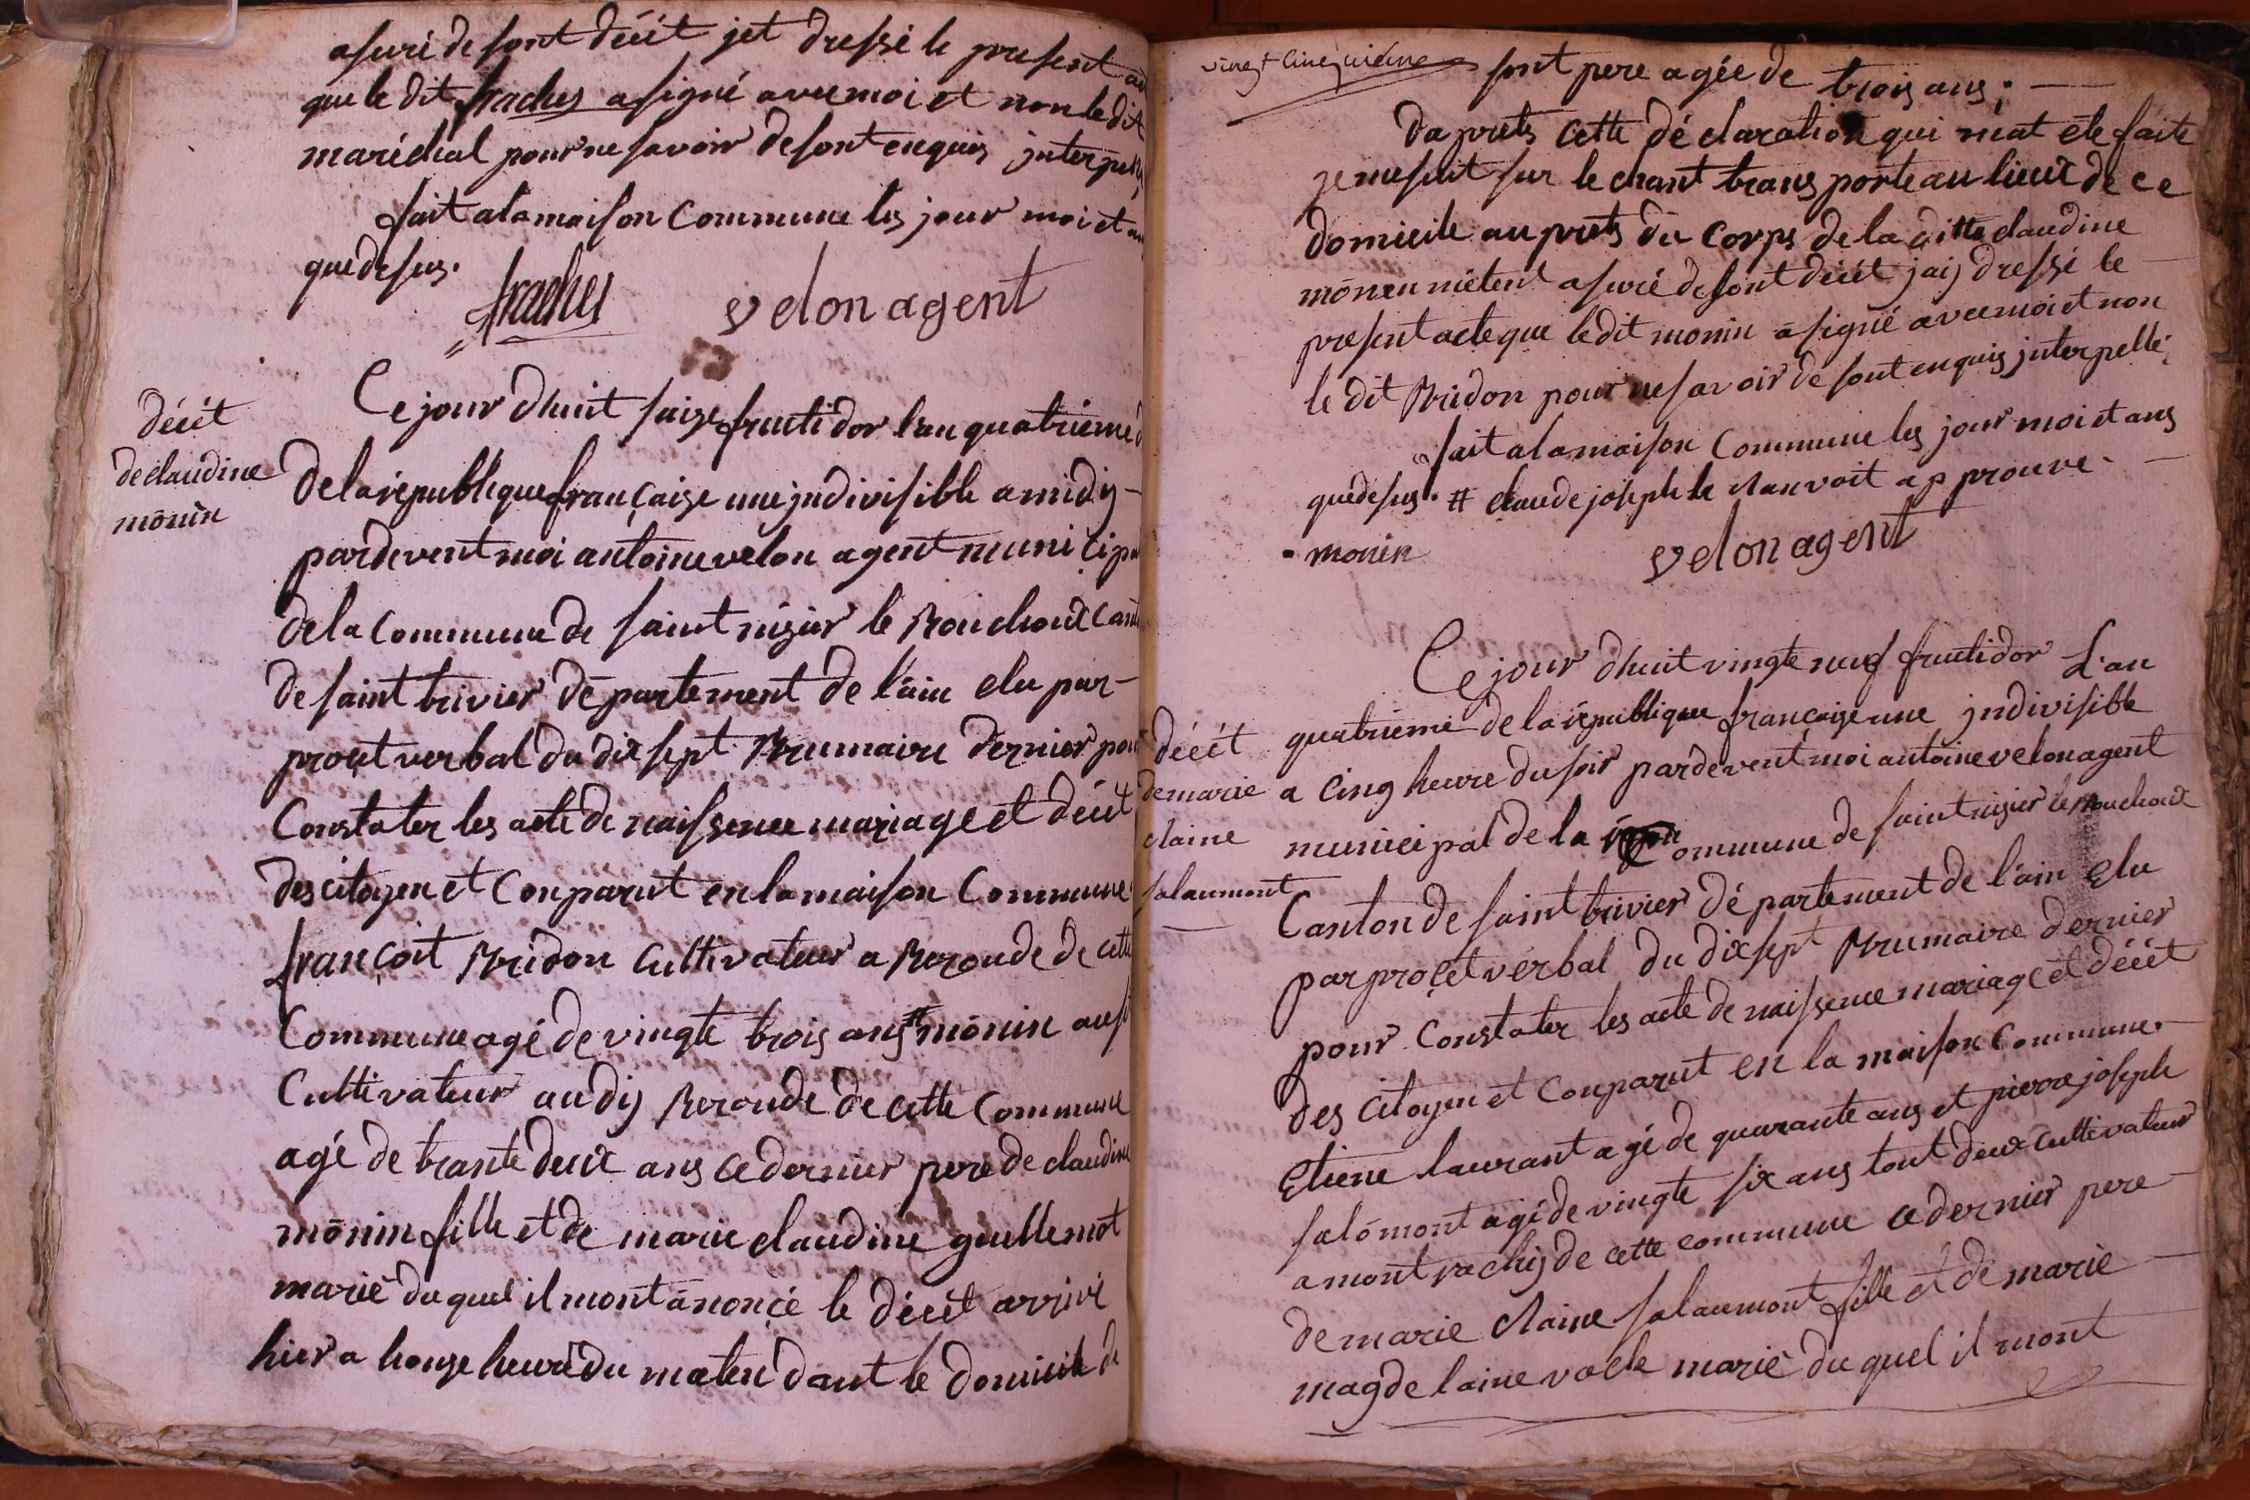 asuré de sont décét jet dressé le present
que le dit fraches a signé avec moi et non le dit
maréchal pour ne savoir de sont enquis
fait a la maison commune les jour moi et
que desus.
fraches velon agent
décét
de claudine
mōnin
Ce jour dhuit saize fructidor l'an quatrieme
de la république française une jndivisible a midij
pardevent moi antoine velon agent
de la commune de saint nizier le Bouchoux
de saint trivier département de l'ain elu par
proçet verbal du dix sept Brumaire dernier
Constater les acte de naissence mariage et décét
des citoyen et Conparut en la maison Commune
françoit Bridon Cultivateur a Beronde de cette
Commune agé de vingte trois ans # mōnin
Cultivateur au dij Beronde de cette Commune
agé de trante deux ans ce dernier pere de claudine
mōnin fille et de marie claudine guillemot
marié duquel il mont ānonçé le décét arrivé
hier a honze heure du maten dant le domicile de
vingt cinquième
sont pere agée de trois ans;
Daprets cette déclaration qui mat été faite
je me suit sur le chant transporte au lieux de ce
domicile auprets du Corps de la ditte claudine
mōnin mētent asuré de sont décét jaij dressé le
present acte que ledit monin a signé avec moi et non
le dit Bridon pour ne savoir de sont enquis jnterpellé
fait a la maison Commune les jour moi et ans
que desus. # claude joseph le ranvoit approuve.
monin velon agent
décét
de marie
claine
salaumont
Ce jour dhuit vingte neuf fructidor L'an
quatrieme de la république françaize une jndivisible
a cinq heure du soir pardevent moi antoine velon agent
municipal de la Commune de saint nizier le Bouchoux
Canton de saint trivier département de l'ain Elu
par proçet verbal du dix sept Brumaire dernier
pour Constater les acte de naissence mariage et décét
des Citoyen et Conparut en la maison Commune.
Etiene laurant agé de quarante ans et pierre joseph
salōmont agé de vingte six ans tout deux Cultivateur
a montrachij de cette commune ce dernier pere
de marie claine salaumont fille et de marie
magdelaine vacle marié du quel il mont